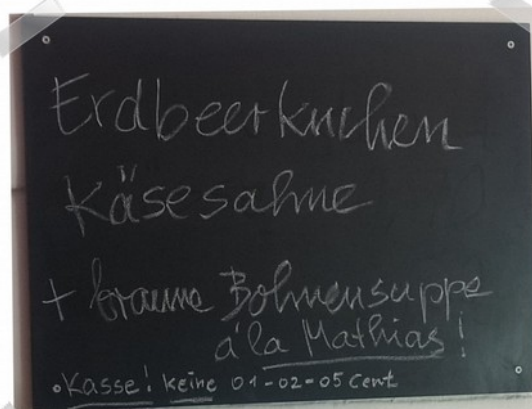 Erdbeerkuchen
Käsesahne
+ braune Bohnensuppe
á la Mathias!
Kasse! keine 01-02-05 Cent